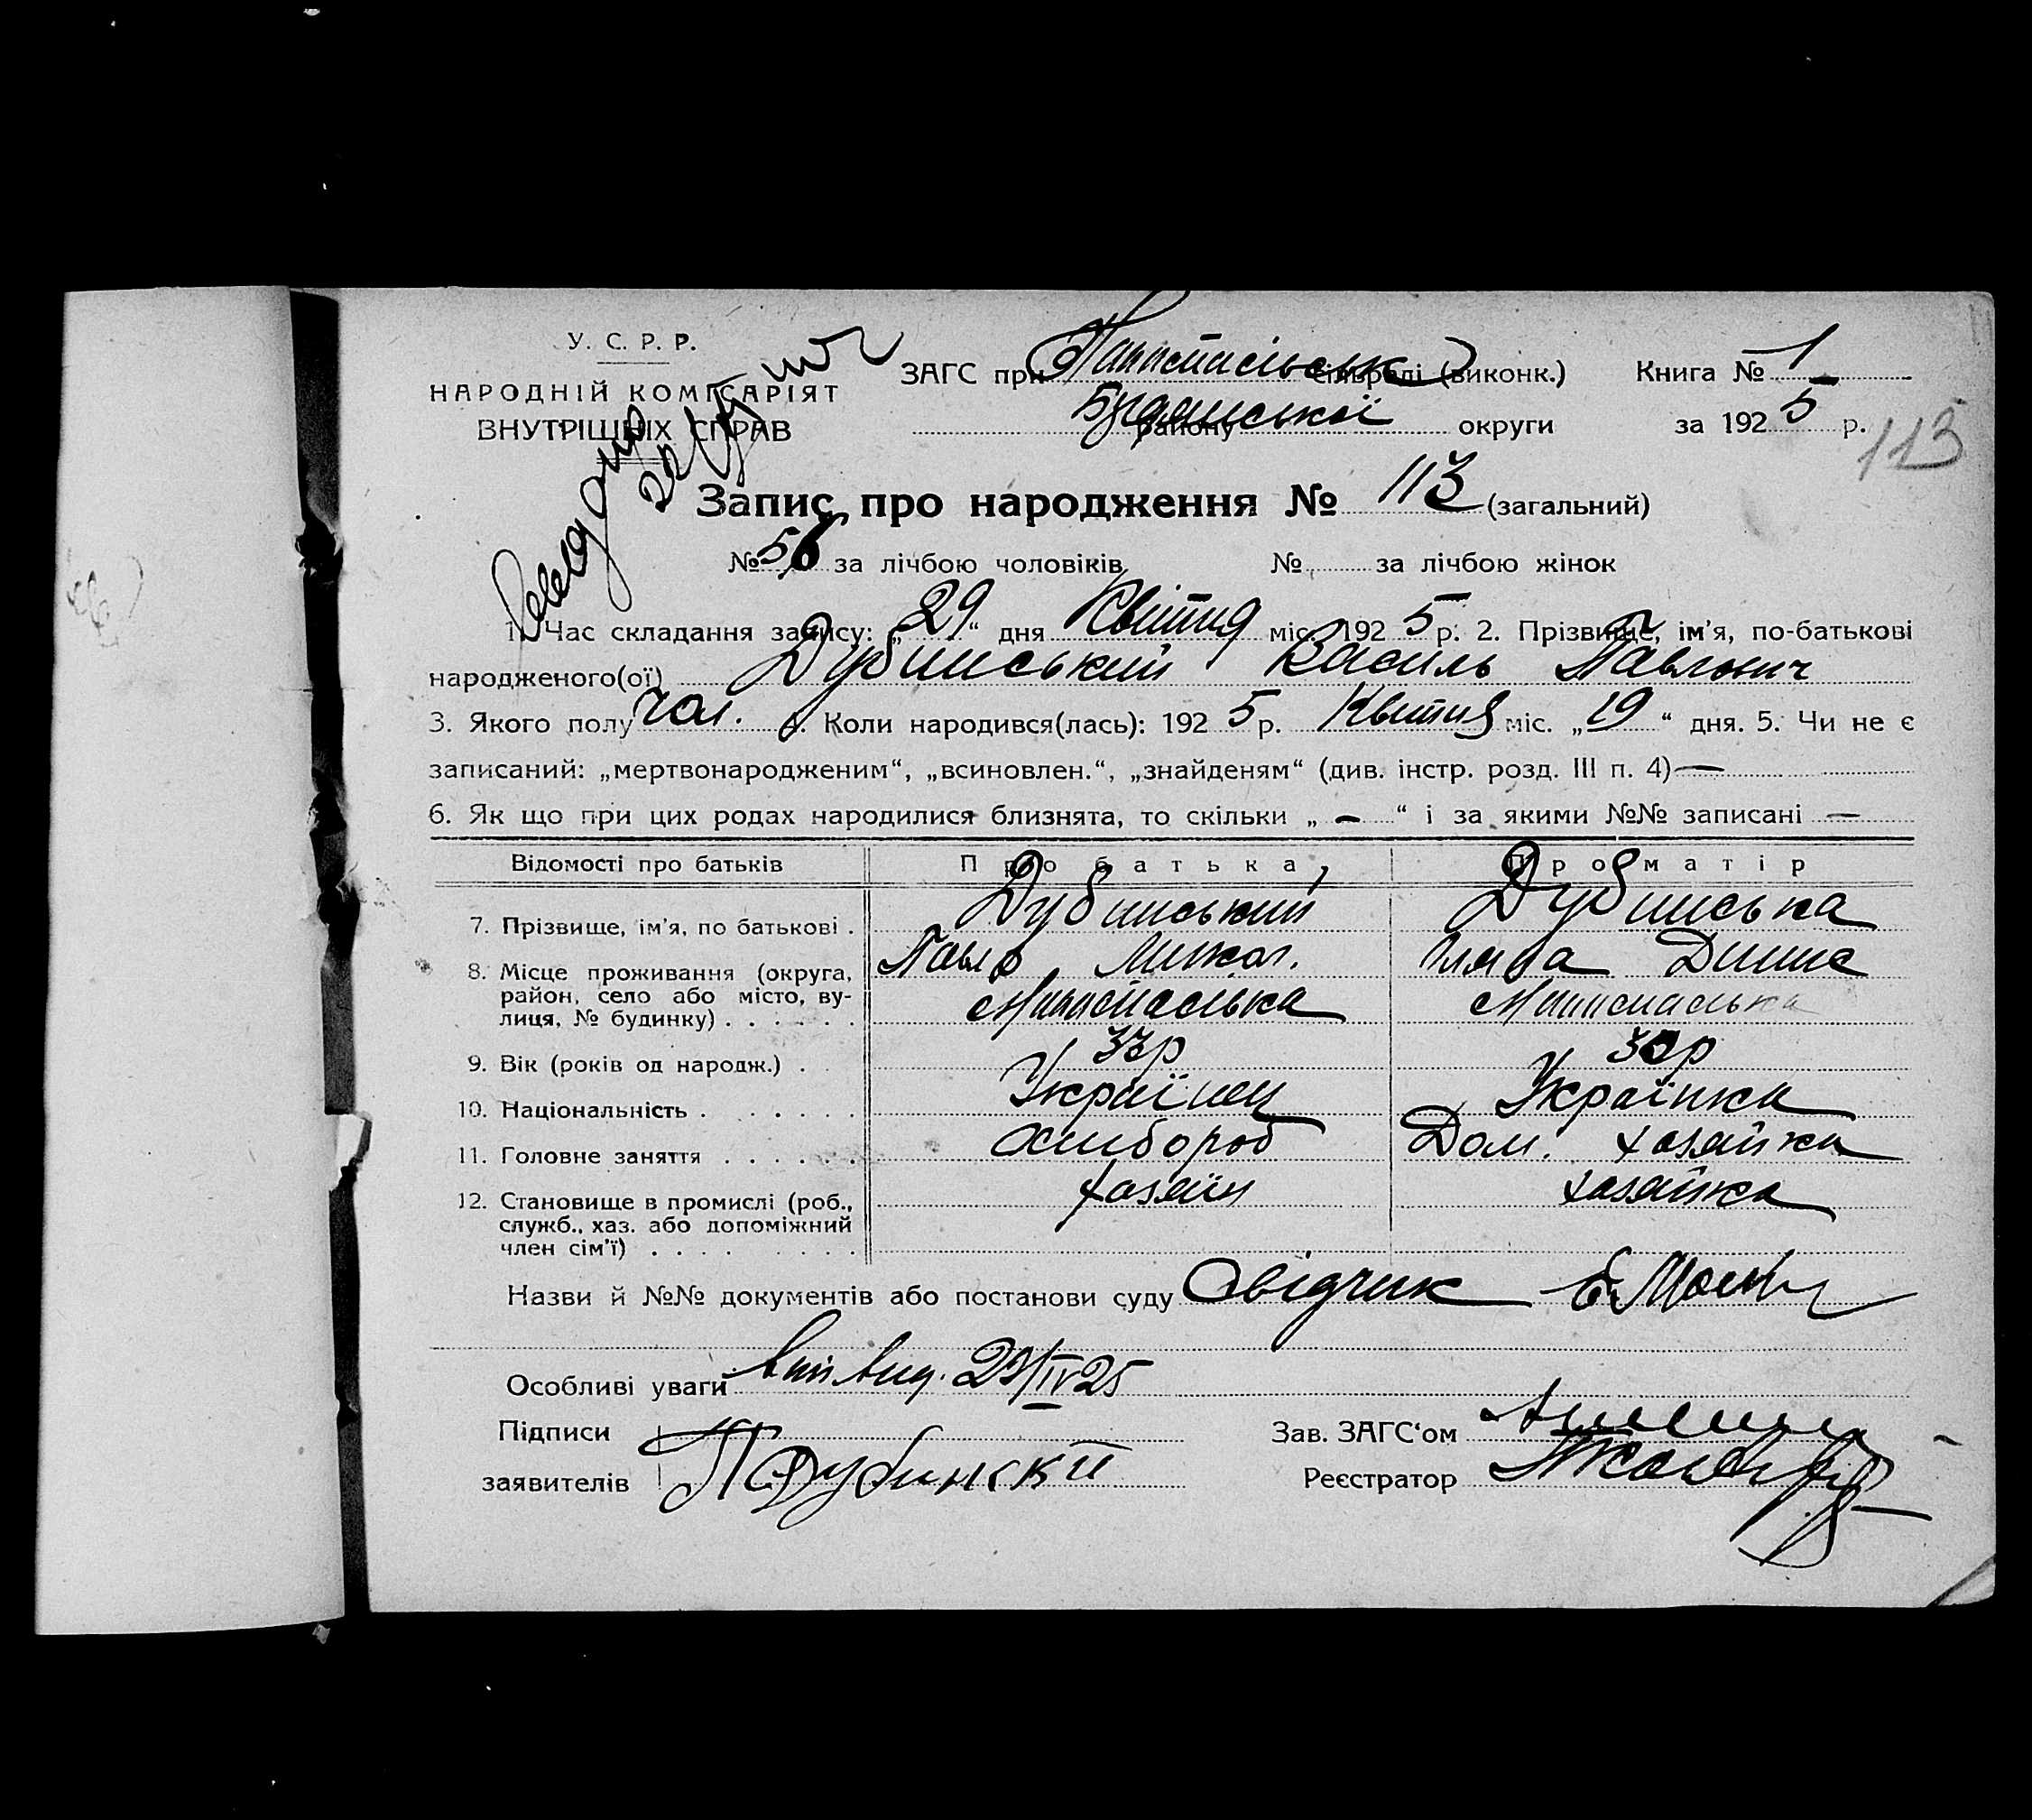 У. С. Р. Р.
НАРОДНІЙ КОМІСАРІЯТ
ВНУТРІШНІХ СПРАВ
ЗАГС при сільраді (виконк.)
району округи
Книга № 1
за 1925 р.
113
Запис про народження № 113 (загальний)
№ 56 за лічбою чоловіків № за лічбою жінок
1. Час складання запису: „29“ дня Квітня міс. 1925 р. 2. Прізвище, ім'я, по-батькові
народженого(ої) Дубинський Василь Павлович
3. Якого полу Чол. 4. Коли народився(лась): 1925 р. Квітня міс. „19“ дня. 5. Чи не є
записаний: „мертвонародженим“, „всиновлен.“, „знайденям“ (див. інстр. розд. III п. 4) —
6. Як що при цих родах народилися близнята, то скільки „ — “ і за якими №№ записані —
Відомості про батьків Про батька Про матір
7. Прізвище, ім'я, по батькові . Дубинський Дубинська
Павло Микол.
8. Місце проживання (округа,
район, село або місто, ву-
лиця, № будинку) . . . . . .
9. Вік (років од народж.) . 33р 30р
10. Національність . . . . . . Українец Українка
11. Головне заняття . . . . . . Хлибороб Дом. хазяйка
12. Становище в промислі (роб., хазяїн хазяйка
служб., хаз. або допоміжний
член сім'ї) . . . . . . . . .
Назви й №№ документів або постанови суду
Особливі уваги 29/IV 25
Підписи
заявителів П Дубинскй
Зав. ЗАГС'ом
Реєстратор